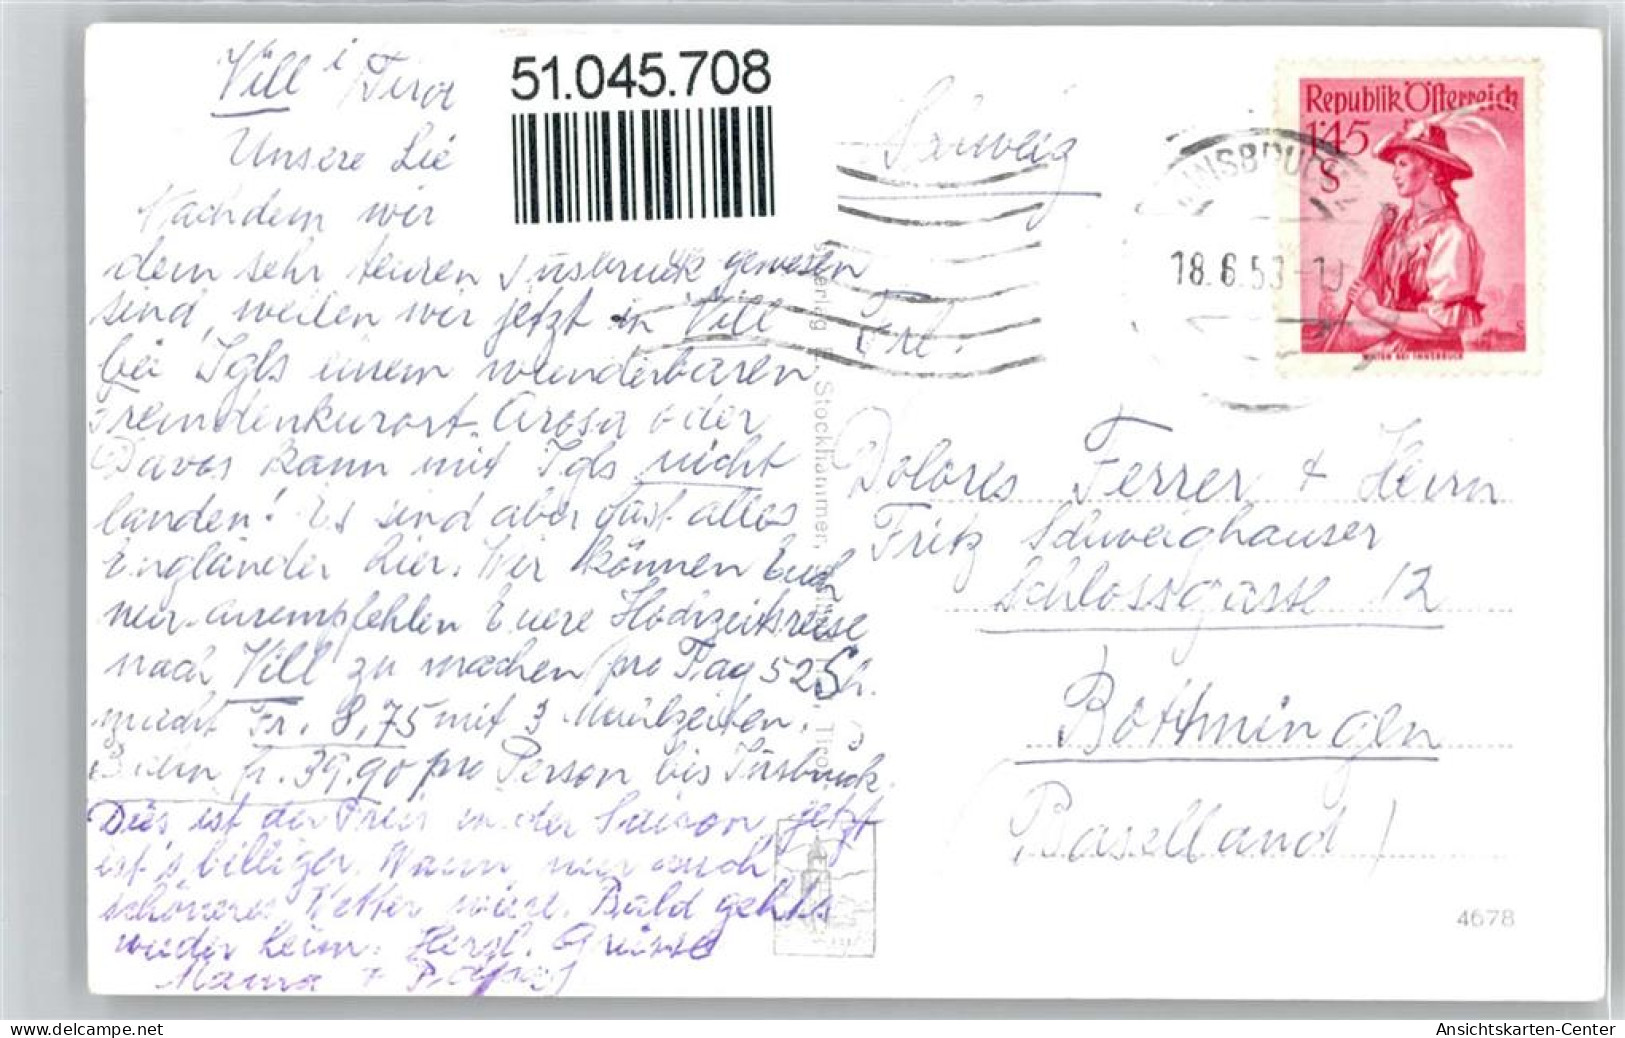 Vill i/Tirol
51.045.708
Unsere Lie
Nachdem wir
dem sehr teuren Insbruck gewesen
sind, weilen wir jetzt in Vill
bei Igls einem wunderbaren
Fremdenkurort. Arosa oder
Davos kann mit Igls nicht
landen! Es sind aber fast alles
Engländer hier. Wir können Euch
nur anempfehlen Euere Hochzeitsreise
nach Vill zu machen pro Tag 52 Sh.
macht Fr. 8,75 mit 3 Maalzeiten.
fr. 39.90 pro Person bis Insbruck.
Dies ist der Preis in der Saison, jetzt
ist's billiger. Wann nur auch
schöneres Wetter wäre. Bald geht's
wieder heim. Herzl. Grüsse
Mama + Papa
Verlag E. Stockhammer, Hall, Tirol
Schweiz
Republik Österreich
1'45
S
WILTEN BEI INNSBRUCK
INNSBRUCK
18.6.53-10
Frl.
Dolores Ferrer + Herrn
Fritz Schweighauser
Schlossgasse 12
Bottmingen
(Baselland)
4678
delcampe.net
Ansichtskarten-Center